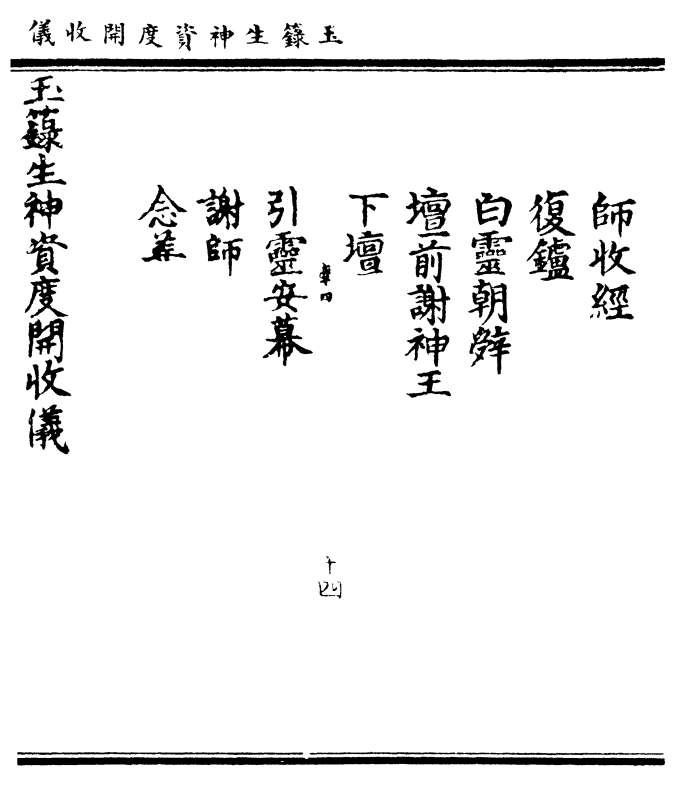 玉籙生神資度開收儀
師收經
復鑪
白靈朝辭
壇前謝神王
下壇
十四
引靈安幕
謝師
念善
玉籙生神資度開收儀